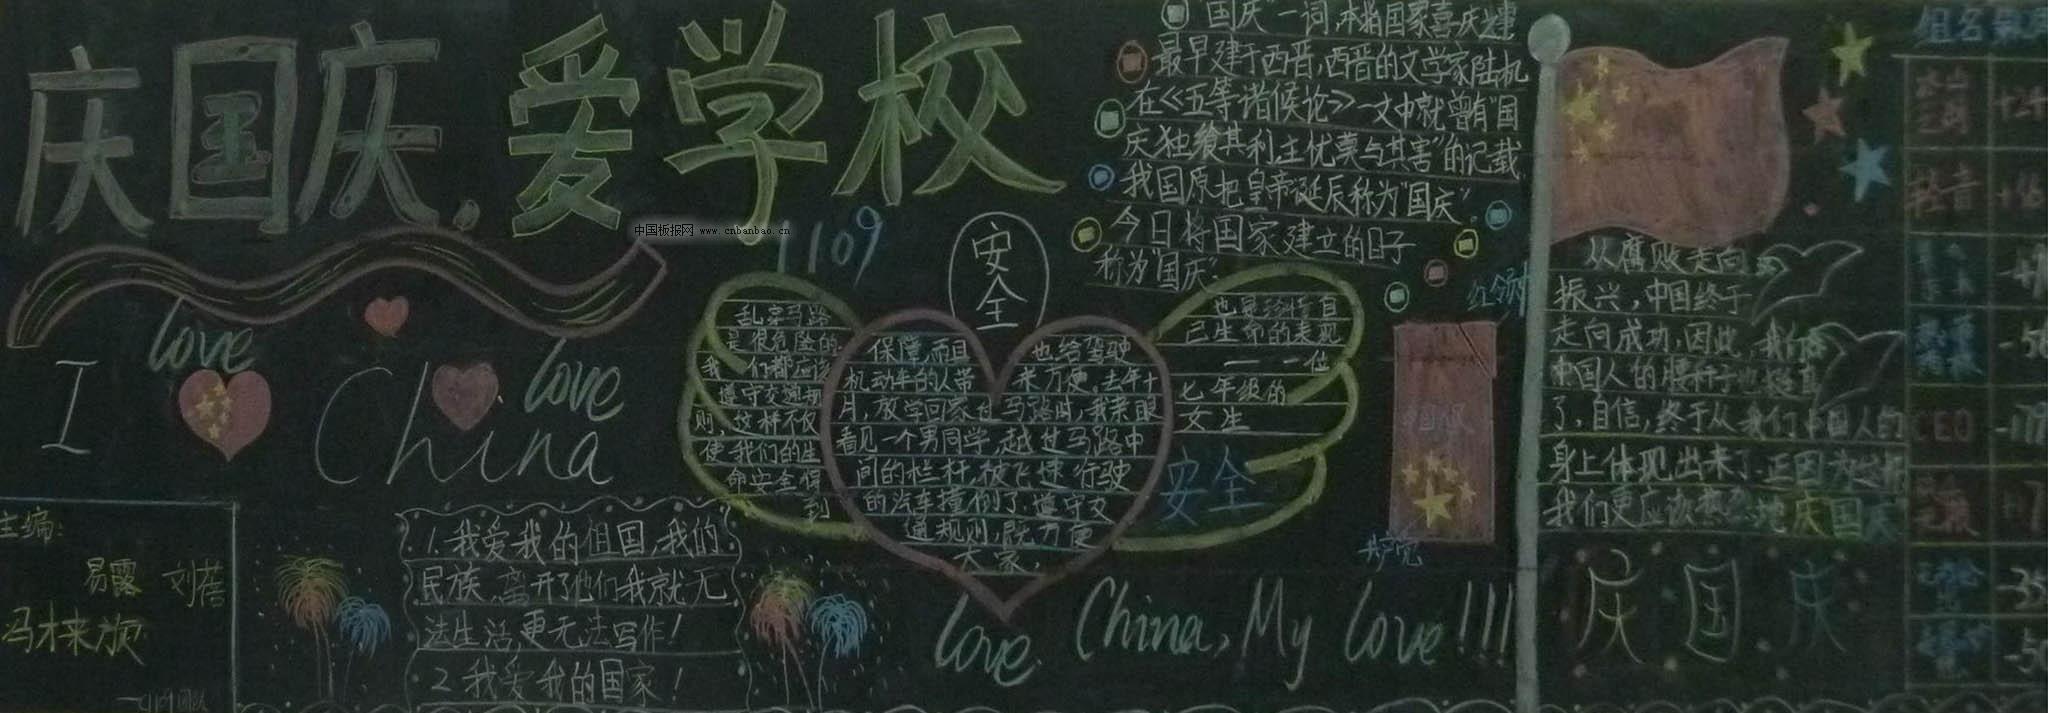 庆国庆，爱学校
中国板报网 www.cnbanbao.cn
1109
"国庆"一词，本指国家喜庆之建
最早建于西晋，西晋的文学家陆机
在《五等诸侯论》一文中就曾有"国
庆独飨其利主优莫与其害"的记载
我国原把皇帝诞辰称为"国庆"
今日将国家建立的日子
称为"国庆"
红领巾
安全
love
love
I China
乱穿马路
是很危险的
我们都应该
遵守交通规
则，这样不仅
使我们的生
命安全得
到
保障，而且 也给驾驶
机动车的人带 来方便。去年十
月，放学回家过马路时，我亲眼
看见一个男同学，越过马路中
间的栏杆，被飞速行驶
的汽车撞倒了。遵守交
通规则，既方便
大家，
也是珍惜自
己生命的表现
——一位
七年级的
女生
安全
从腐败走向
振兴，中国终于
走向成功，因此，我们
中国人的腰杆子也挺直
了，自信，终于从我们中国人的
身上体现出来了。正因为这样
我们更应该热烈地庆国庆
庆国庆
共产党
主编：
易露 刘蓓
1.我爱我的祖国，我的
民族，离开了他们我就无
法生活，更无法写作！
2.我爱我的国家！
love China, My love!!!!
组名
CEO